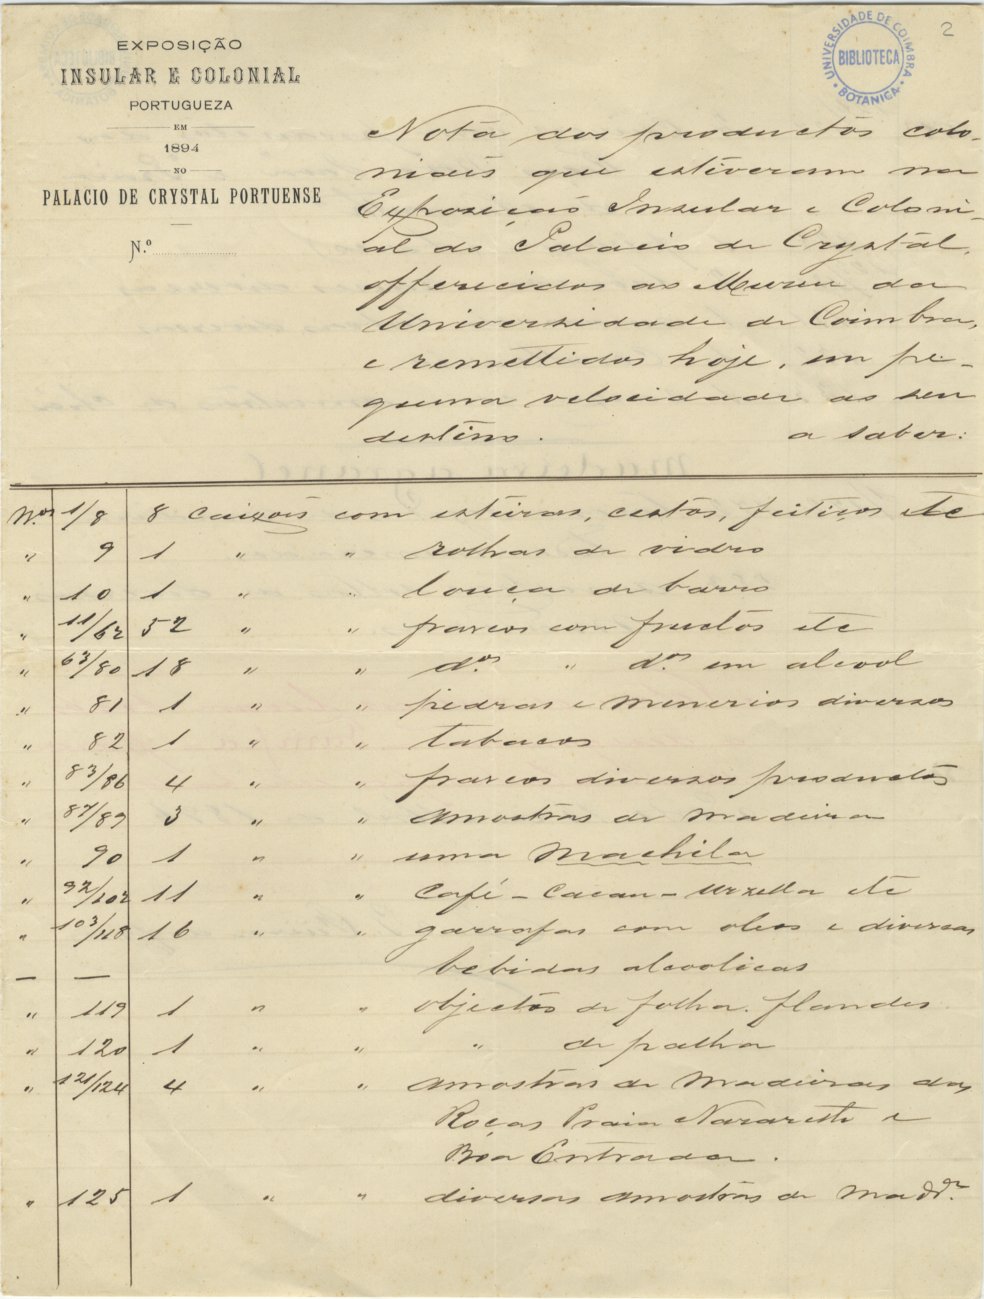 EXPOSIÇÃO
INSULAR E COLONIAL
PORTUGUEZA
EM
1894
NO
PALACIO DE CRYSTAL PORTUENSE
N.º
UNIVERSIDADE DE COIMBRA
BIBLIOTECA
BOTANICA
2
Nota dos productos colo-
niáis que estiveram na
Exposição Insular e Coloni-
al do Palacio de Crystal,
offerecidos ao Museu da
Universidade de Coimbra,
e remettidos hoje, em pe-
quena velocidade ao seu
destino. a saber:
N.os 1/8 8 caixões com esteiras, cestos, feitiços etc
" 9 1 " " rolhas de vidro
" 10 1 " " louça de barro
" 11/62 52 " " frascos com fructos etc
" 63/80 18 " " d.os " d.os em alcool
" 81 1 " " pedras e minerios diversos
" 82 1 " " tabacos
" 83/86 4 " " frascos diversos productos
" 87/89 3 " " amostras de madeira
" 90 1 " " uma Machila
" 92/102 11 " " Café - Cacau - Urzella etc
" 103/118 16 " " garrafas com oleos e diversas
— — bebidas alcoolicas
" 119 1 " " objectos de folha flandes
" 120 1 " " " de palha
" 121/124 4 " " amostras de madeiras das
Roças Praia Nazareth e
Bôa Entrada.
" 125 1 " " diversas amostras de mad.ra